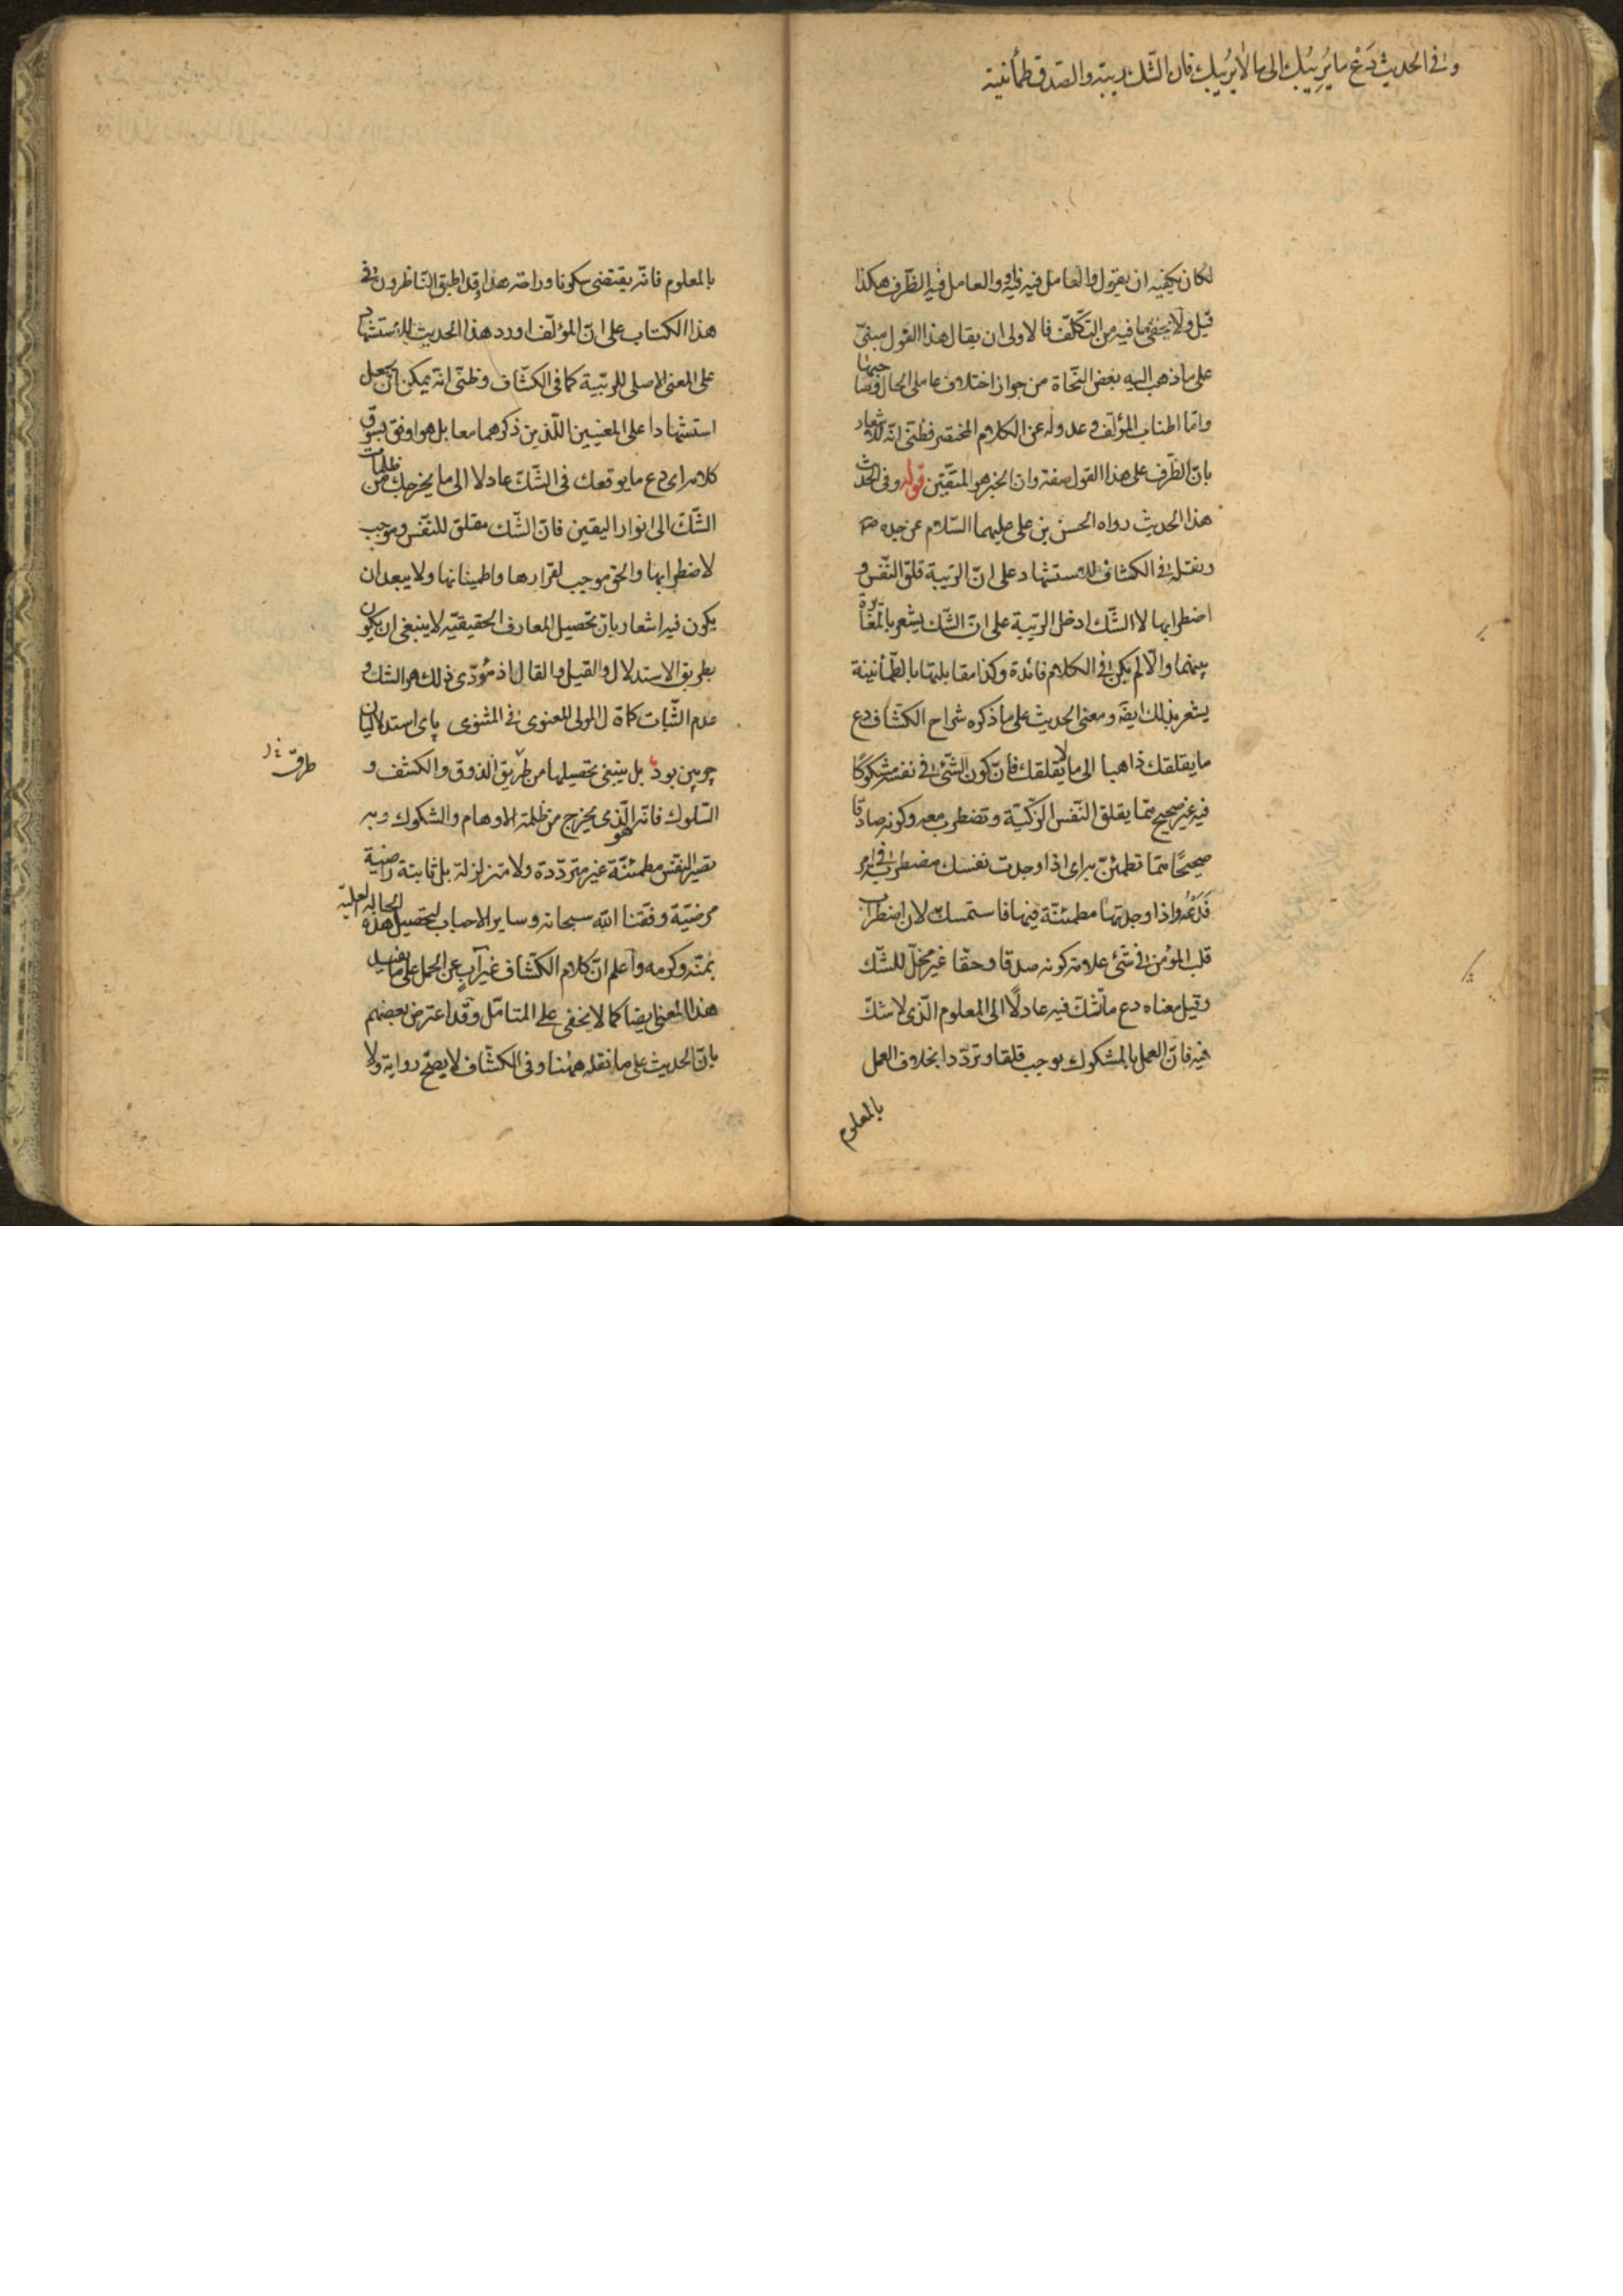 وفى الحديث دَعْ ما يُرِيبُك الى ما لا يرُيبُك فان الشك ريبة والصدق طمأنينة
لكان يكفيه ان يقول والعامل فيه فيه والعامل فيه الظرف هكذا
قيل ولا يخفى ما فيه من التكلّف فالاولى ان يقال هذا القول مبنىّ
على ما ذهب اليه بعض النّحاة من جواز اختلاف عاملى الحال وصاحبها
وامّا اطناب المؤلّف وعدوله عن الكلام المختصر فظنّى انّه للاشعار
بانّ الظّرف على هذا القول صفة وان الخبر هو للمتّقين قوله وفى الحديث
هذا الحديث رواه الحسن بن على عليهما السّلام عن جده ص
ونقله فى الكشاف للاستشهاد على انّ الرّيبة قلق النّفس و
اضطرابها لا الشّك اذ حمل الرّيبة على انّ الشّك يشعر بالمغايرة
بينهما والّا لم يكن فى الكلام فائدة وكذا مقابلتها بالطّمأنينة
يشعر بذلك ايضا ومعنى الحديث على ما ذكره شراح الكشّاف دع
ما يقلقك ذاهبا الى ما لا يقلقك فانّ كون الشّئ فى نفسه مشكوكًا
فيه غير صحيح ممّا يقلق النّفس الزّكيّة وتضطرب معه وكونه صادقا
صحيحًا ممّا تطمئنّ به اى اذا وجدت نفسك مضطربة فى امر
فَدَعْهُ واذا وجدتها مطمئنّة فيها فاستمسك به لان اضطراب
قلب المؤمن فى شئ علامة كونه صدقا وحقا غير محلّ للشّك
وقيل معناه دع ما تشكّ فيه عادلًا الى المعلوم الّذى لا شكّ
فيه فانّ العمل بالمشكوك يوجب قلقا وتردّدا بخلاف العمل
بالمعلوم
بالمعلوم فانّه يقتضى سكونا وراحة هذا وقد اطبق النّاظرون فى
هذا الكتاب على انّ المؤلّف اورد هذا الحديث للاستشهاد
على المعنى الاصلى للرّيبة كما فى الكشّاف وظنّى انّه يمكن ان يجعل
استشهادا على المعنيين اللّذين ذكرهما معا بل هو اوفق بسوق
كلامه اى دع ما يوقعك فى الشّكّ عادلا الى ما يخرجك من ظلمات
الشّكّ الى انوار اليقين فانّ الشّك مقلق للنّفس وموجب
لاضطرابها والحق موجب لقرارها واطمينانها ولا يبعد ان
يكون فيه اشعار بان تحصيل المعارف الحقيقيّة لا ينبغى ان يكون
بطريق الاستدلال والقيل والقال اذ مؤدّى ذلك هو الشك و
عدم الثّبات كما قال المولى المعنوى فى المثنوى پاى استدلاليان
چوبين بود بل ينبغى تحصيلها من طريق الذوق والكشف و
طرق
السّلوك فانه هو الّذى يخرج من ظلمة الاوهام والشكوك وبه
تصير النفس مطمئنّة غير متردّدة ولا متزلزلة بل ثابتة راضية
مرضيّة وفّقنا الله سبحانه وساير الاحباب لتحصيل هذه الحالة العليّة
بمنّه وكرمه واعلم انّ كلام الكشّاف غير آبٍ عن الحمل على ما يفيد
هذا المعنى ايضا كما لا يخفى على المتامّل وقد اعترض بعضهم
بانّ الحديث على ما نقله ههنا وفى الكشّاف لا يصحّ رواية ولا